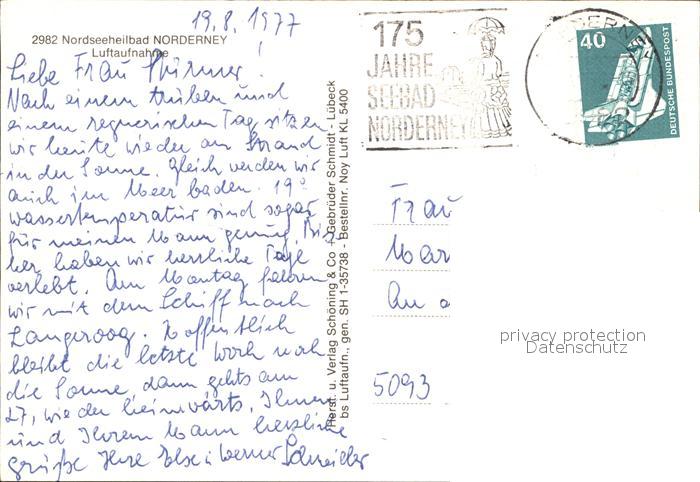 19.8.1977
2982 Nordseeheilbad NORDERNEY
Luftaufnahme
Liebe Frau Thürmer!
Nach einem trüben und
einem regnerischen Tag sitzen
wir heute wieder am Strand
in der Sonne. Gleich werden wir
auch im Meer baden. 19°
Wassertemperatur sind sogar
für meinen Mann genug. Bis-
her haben wir herrliche Tage
verlebt. Am Montag fahren
wir mit dem Schiff nach
Langeroog. Hoffentlich
bleibt die letzte Woch noch
die Sonne, dann gehts am
27. wieder heimwärts. Ihnen
und Ihrem Mann herzliche
Grüße Ihre Ilse u. Werner Schneider
Herst. u. Verlag Schöning & Co + Gebrüder Schmidt - Lübeck
bs Luftaufn., gen. SH 1-35738 - Bestellnr. Noy Luft KL 5400
175
JAHRE
SEEBAD
NORDERNEY
NORDERNEY
40
DEUTSCHE BUNDESPOST
Frau
Mar
An
5093
privacy protection
Datenschutz